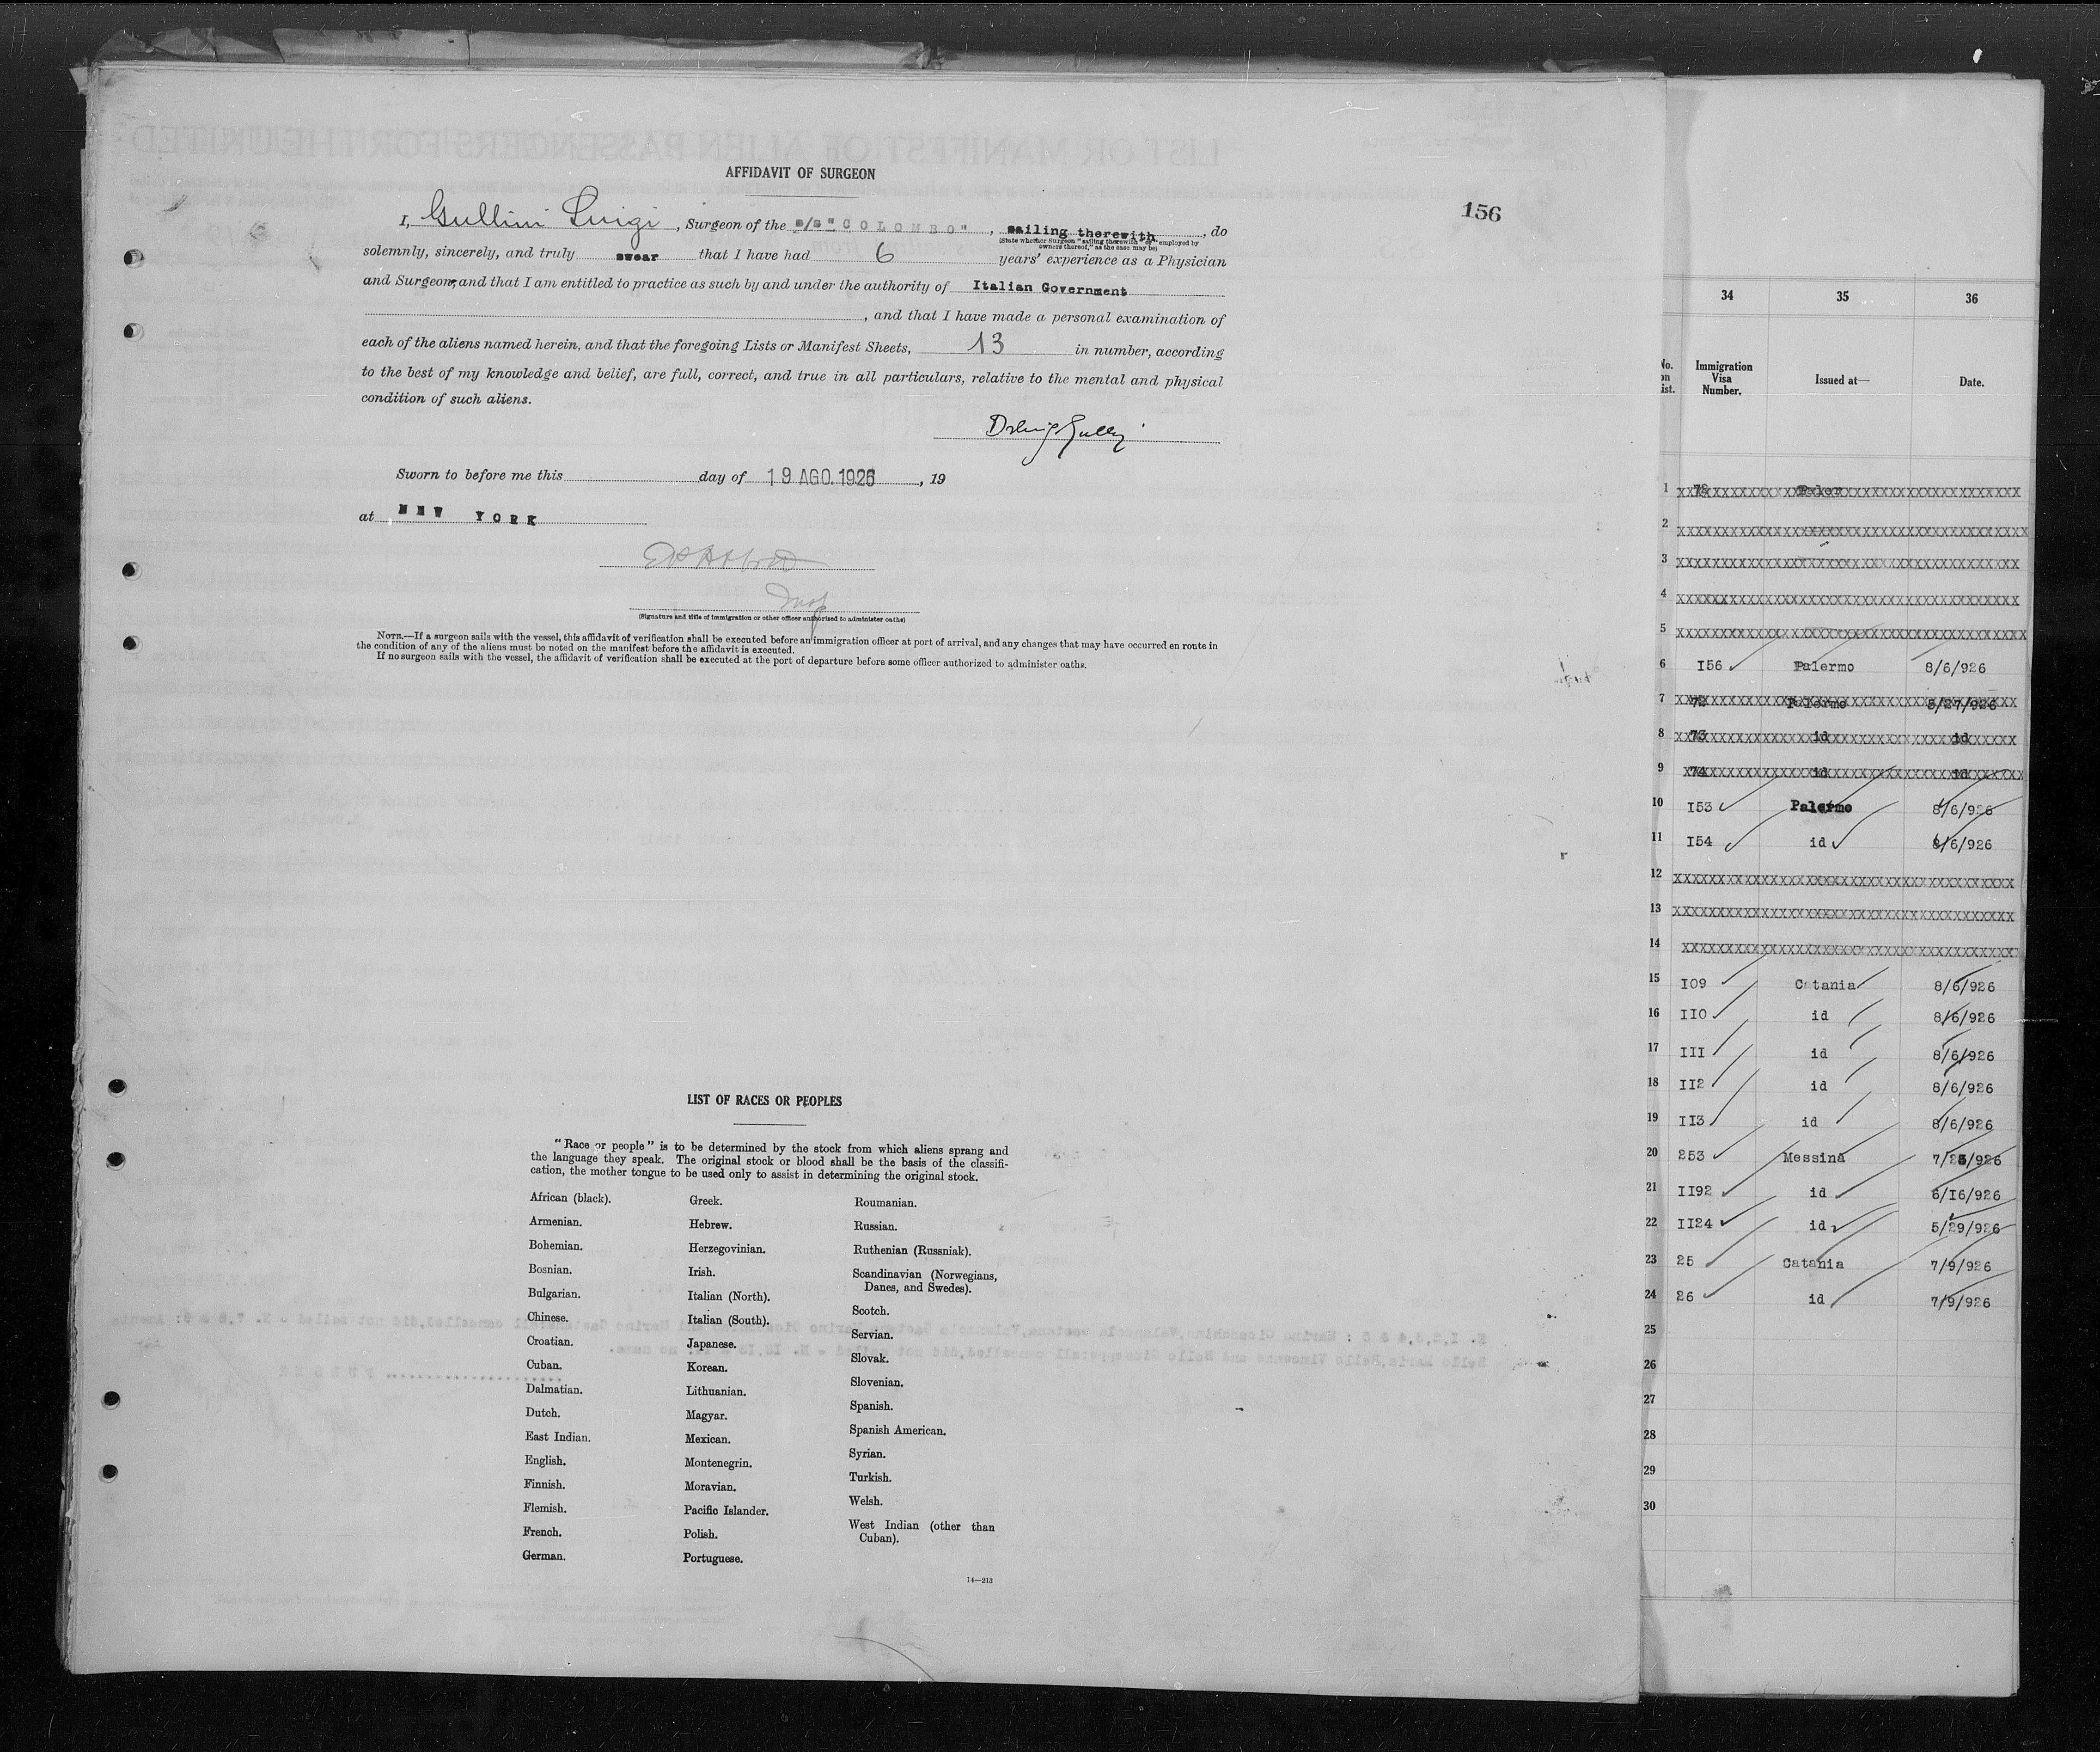 AFFIDAVIT OF SURGEON
156
I, Gullini Luigi, Surgeon of the s/s "COLOMBO", sailing therewith, do
(State whether Surgeon "sailing therewith" or "employed by owners thereof," as the case may be)
solemnly, sincerely, and truly swear that I have had 6 years' experience as a Physician
and Surgeon, and that I am entitled to practice as such by and under the authority of Italian Government
, and that I have made a personal examination of
each of the aliens named herein, and that the foregoing Lists or Manifest Sheets, 13 in number, according
to the best of my knowledge and belief, are full, correct, and true in all particulars, relative to the mental and physical
condition of such aliens.
Sworn to before me this day of 19 AGO. 1926, 19
at NEW YORK
Insp
(Signature and title of immigration or other officer authorized to administer oaths)
NOTE.—If a surgeon sails with the vessel, this affidavit of verification shall be executed before an immigration officer at port of arrival, and any changes that may have occurred en route in
the condition of any of the aliens must be noted on the manifest before the affidavit is executed.
If no surgeon sails with the vessel, the affidavit of verification shall be executed at the port of departure before some officer authorized to administer oaths.
LIST OF RACES OR PEOPLES
"Race or people" is to be determined by the stock from which aliens sprang and
the language they speak. The original stock or blood shall be the basis of the classifi-
cation, the mother tongue to be used only to assist in determining the original stock.
African (black).
Armenian.
Bohemian.
Bosnian.
Bulgarian.
Chinese.
Croatian.
Cuban.
Dalmatian.
Dutch.
East Indian.
English.
Finnish.
Flemish.
French.
German.
Greek.
Hebrew.
Herzegovinian.
Irish.
Italian (North).
Italian (South).
Japanese.
Korean.
Lithuanian.
Magyar.
Mexican.
Montenegrin.
Moravian.
Pacific Islander.
Polish.
Portuguese.
Roumanian.
Russian.
Ruthenian (Russniak).
Scandinavian (Norwegians,
Danes, and Swedes).
Scotch.
Servian.
Slovak.
Slovenian.
Spanish.
Spanish American.
Syrian.
Turkish.
Welsh.
West Indian (other than
Cuban).
14—213
34 35 36
No. on List. Immigration Visa Number. Issued at— Date.
1
2
3
4
5
6 I56 Palermo 8/6/926
7 72 Palermo 5/27/926
8 73 id id
9 74 id id
10 I53 Palermo 8/6/926
11 I54 id 8/6/926
12
13
14
15 I09 Catania 8/6/926
16 II0 id 8/6/926
17 III id 8/6/926
18 II2 id 8/6/926
19 II3 id 8/6/926
20 253 Messina 7/23/926
21 II92 id 6/I6/926
22 II24 id 5/29/926
23 25 Catania 7/9/926
24 26 id 7/9/926
25
26
27
28
29
30